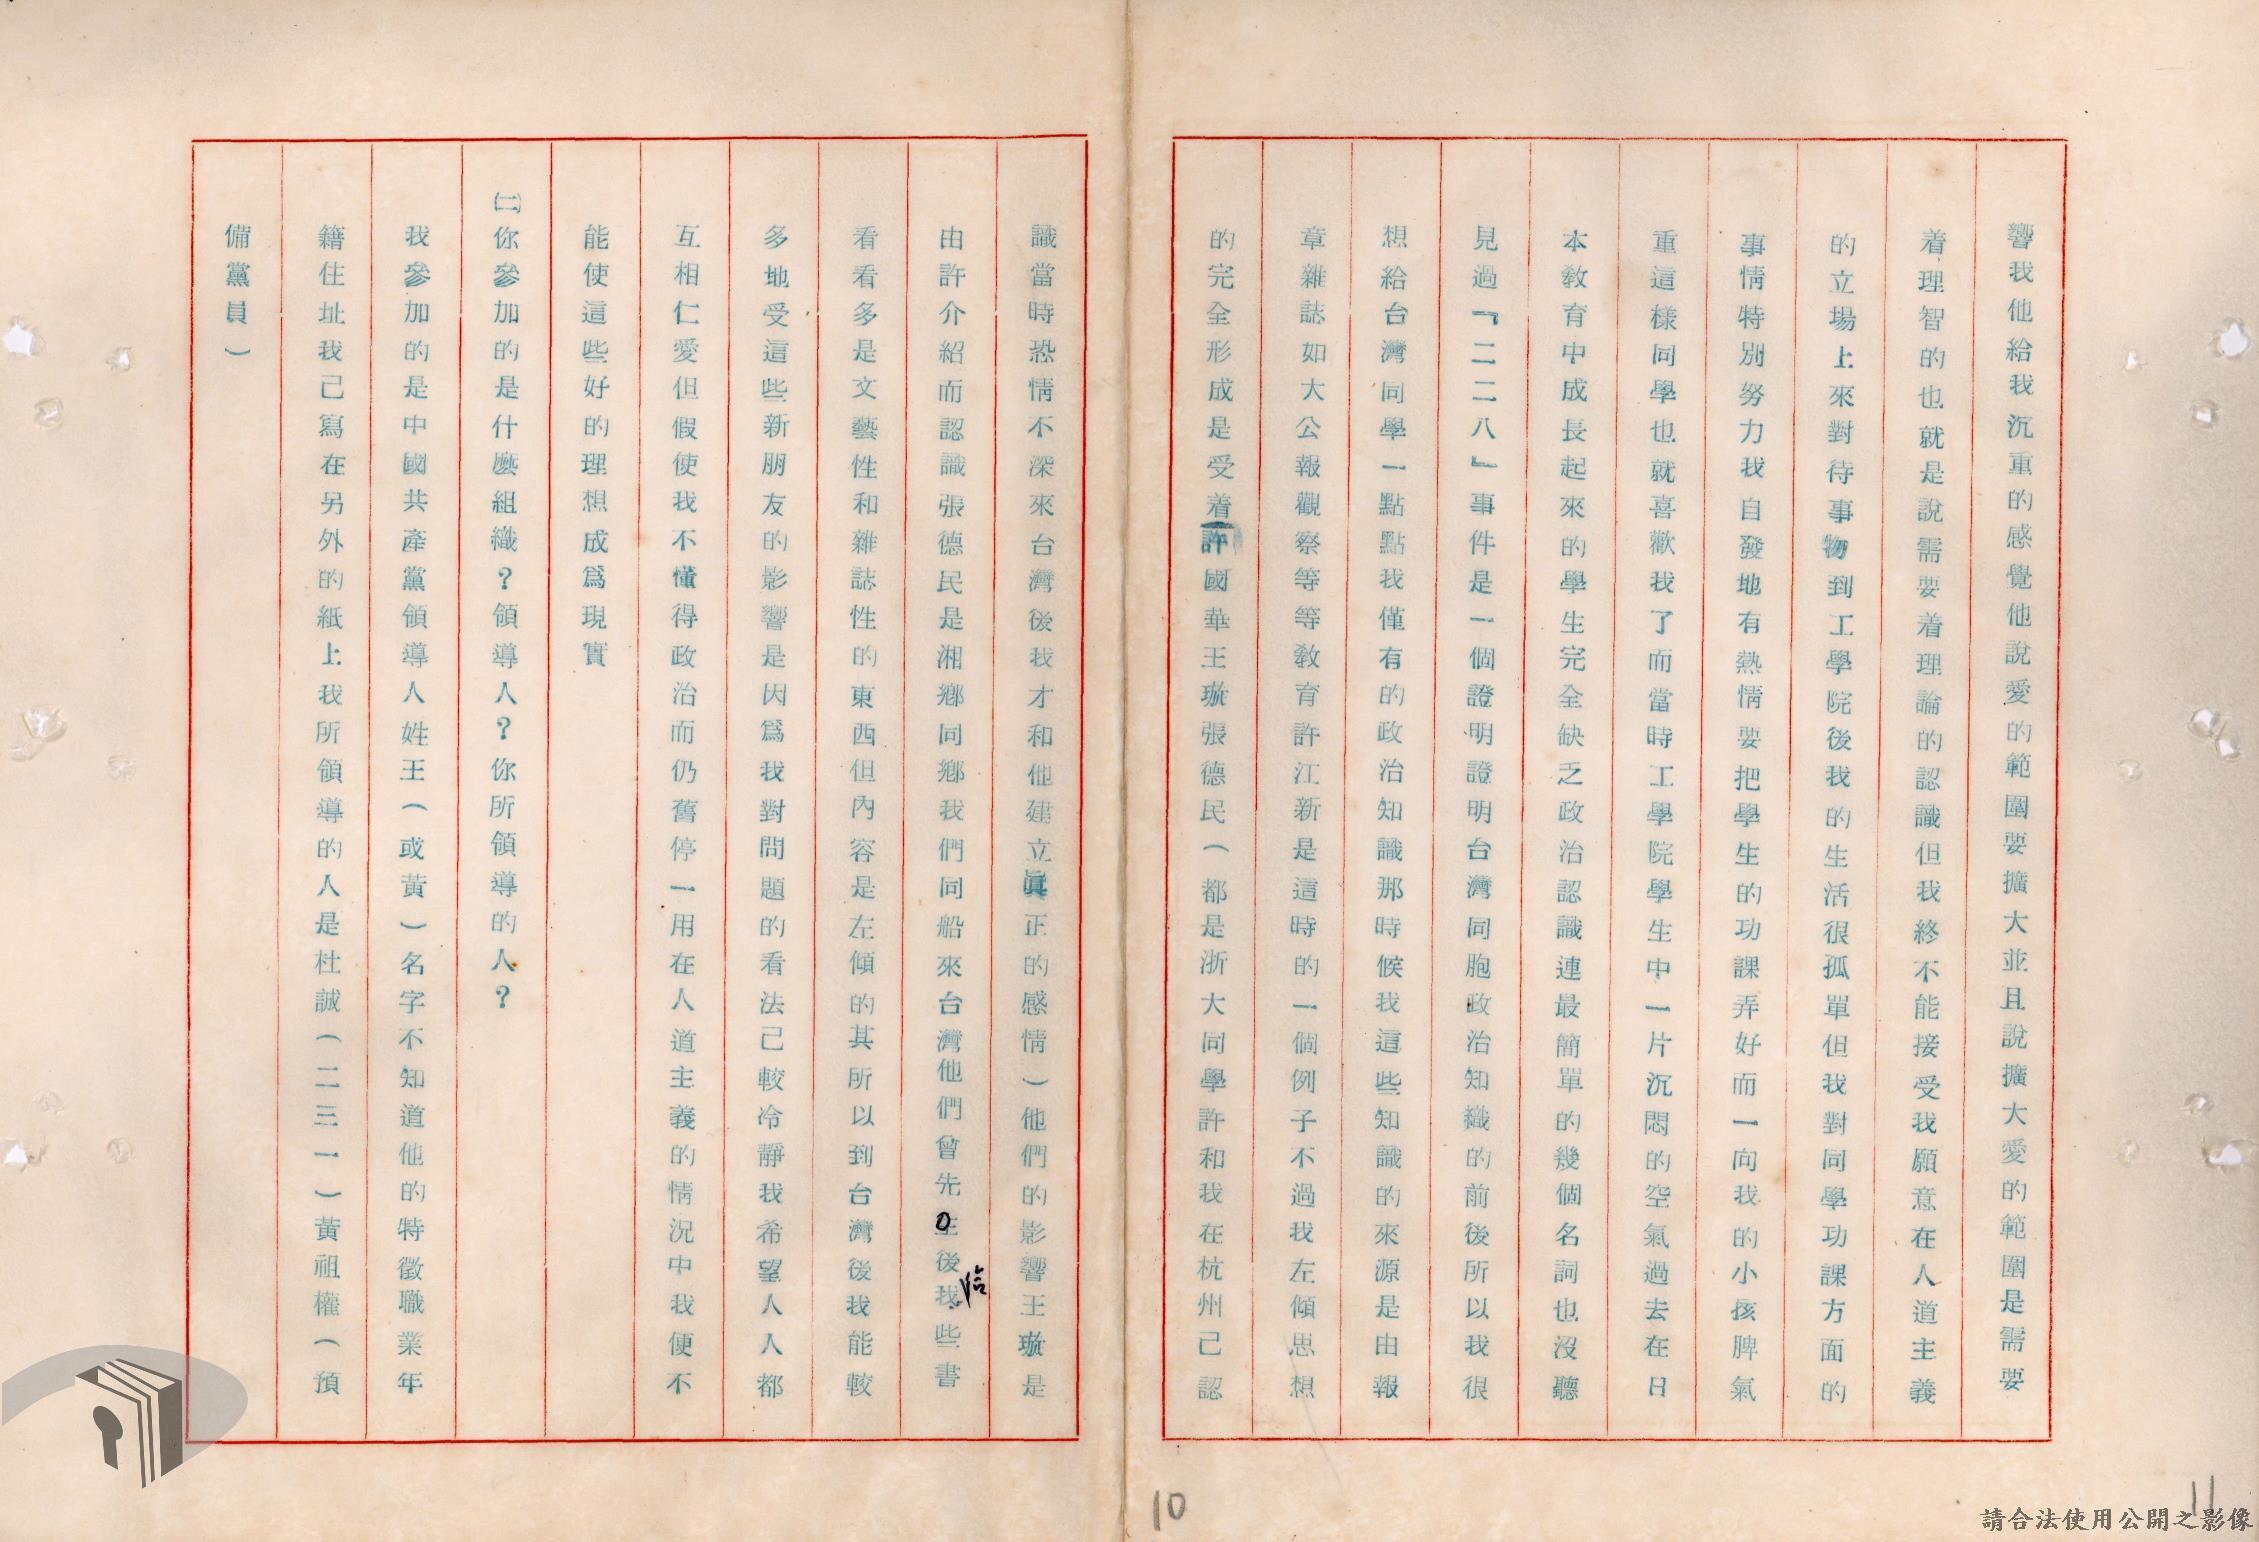 響我他給我沉重的感覺他說愛的範圍要擴大並且說擴大愛的範圍是需要
着理智的也就是說需要着理論的認識但我終不能接受我願意在人道主義
的立場上來對待事物到工學院後我的生活很孤單但我對同學功課方面的
事情特別努力我自發地有熱情要把學生的功課弄好而一向我的小孩脾氣
重這樣同學也就喜歡我了而當時工學院學生中一片沉悶的空氣過去在日
本教育中成長起來的學生完全缺乏政治認識連最簡單的幾個名詞也沒聽
見過『二二八』事件是一個證明證明台灣同胞政治知織的前後所以我很
想給台灣同學一點點我僅有的政治知識那時候我這些知識的來源是由報
章雜誌如大公報觀察等等教育許江新是這時的一個例子不過我左傾思想
的完全形成是受着許國華王璇張德民（都是浙大同學許和我在杭州己認
識當時恐情不深來台灣後我才和他建立眞正的感情）他們的影響王璇是
由許介紹而認識張德民是湘鄉同鄉我們同船來台灣他們曾先後給我些書
看看多是文藝性和雜誌性的東西但內容是左傾的其所以到台灣後我能較
多地受這些新朋友的影響是因爲我對問題的看法己較冷靜我希望人人都
互相仁愛但假使我不懂得政治而仍舊停一用在人道主義的情況中我便不
能使這些好的理想成爲現實
㈡你參加的是什麼組織？領導人？你所領導的人？
我參加的是中國共產黨領導人姓王（或黃）名字不知道他的特徵職業年
籍住址我己寫在另外的紙上我所領導的人是杜誠（二三一）黃祖權（預
備黨員）
10
11
請合法使用公開之影像